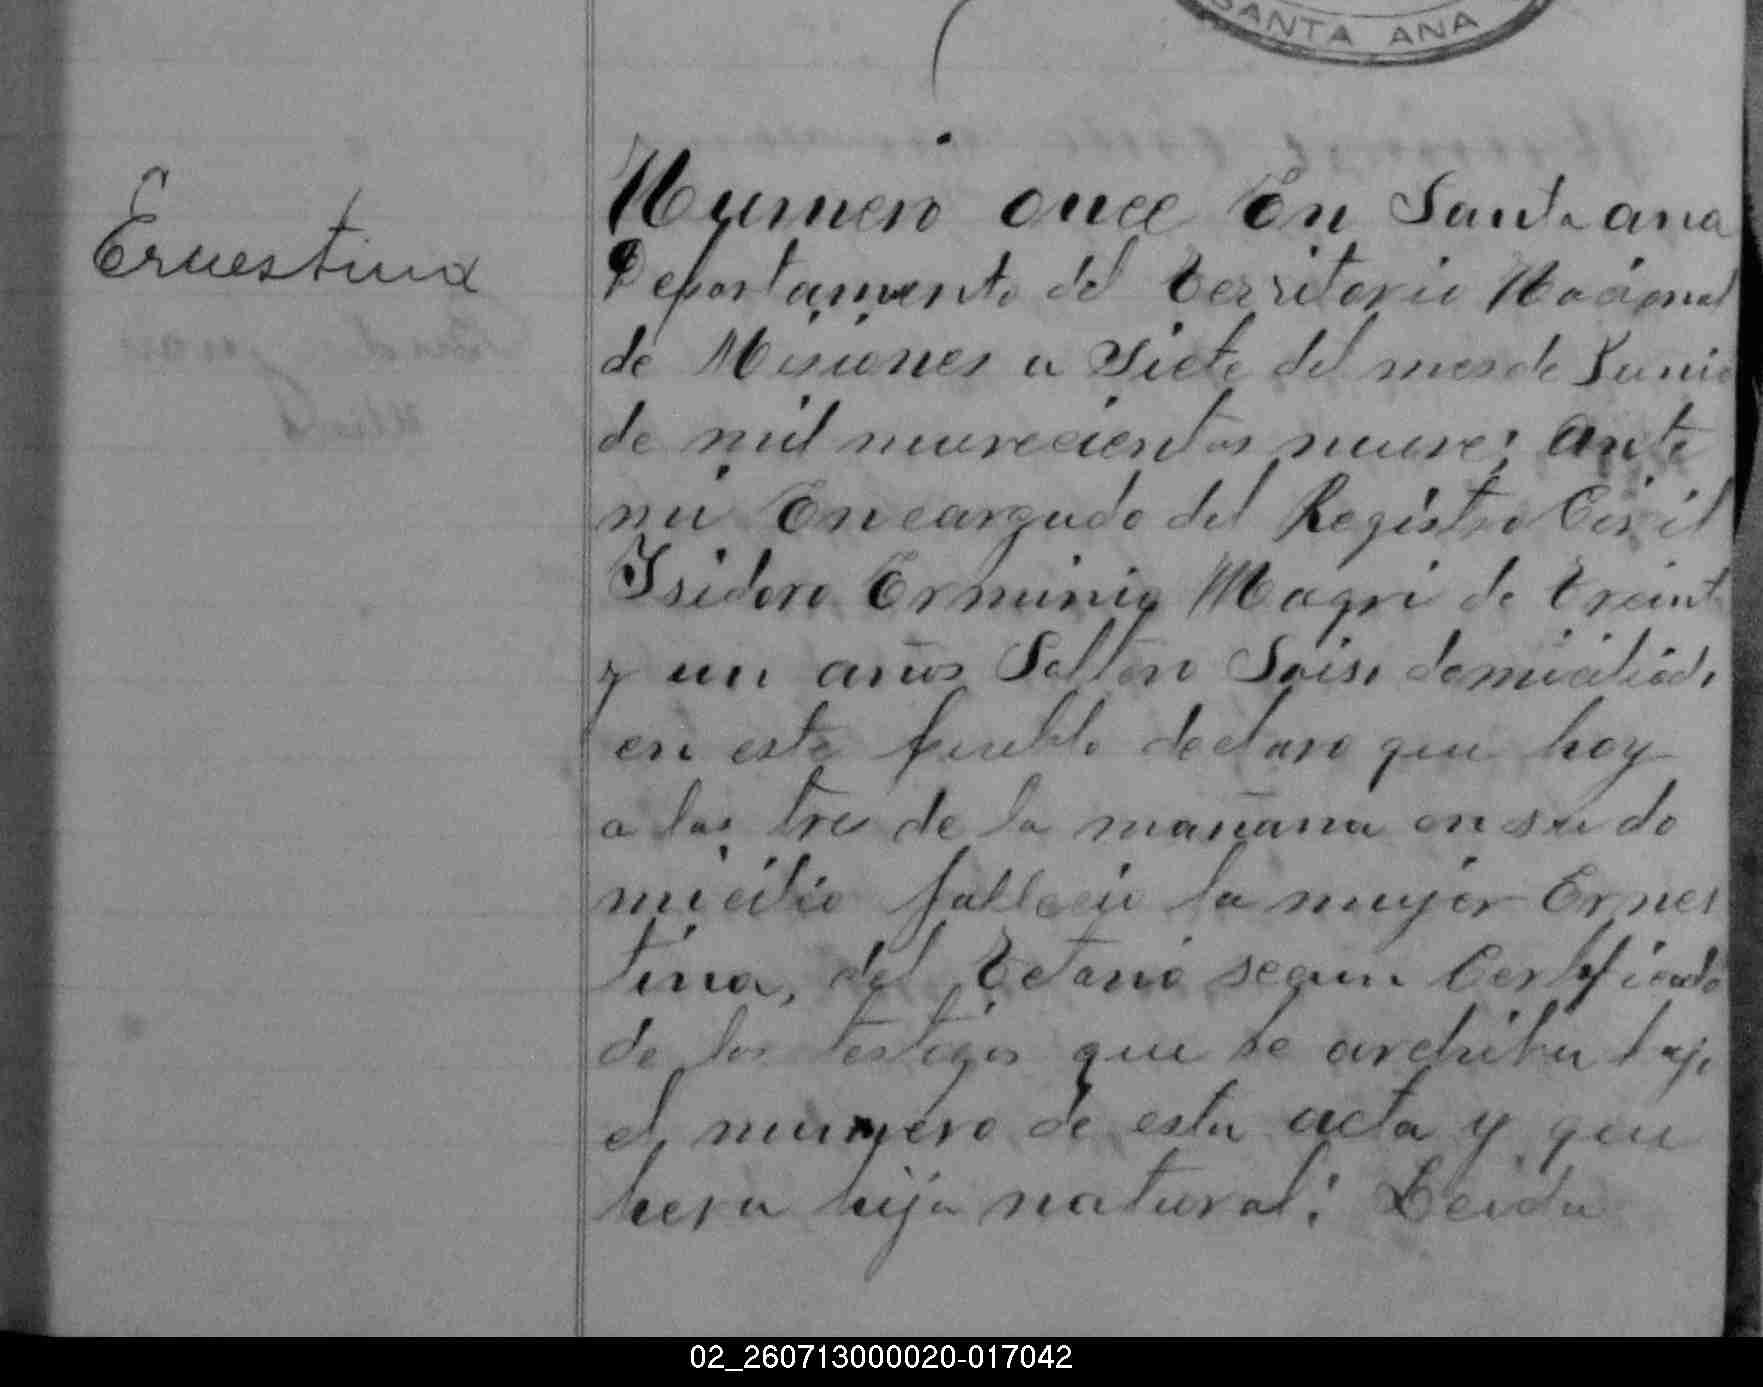 SANTA ANA
Ernestina
Numero once En Santa ana
Departamento del Territorio Nacional
de Misiones a Siete del mes de Junio
de mil nuvecientos nueve; Ante
mi Encargado del Registro Civil
Isidoro Erminio Magri de Treinta
y un años Soltero Suiso domiciliado
en este pueblo declaro que hoy
a las tres de la mañana en su do
micilio fallecio la mujer Ernes
tina, del Tetano segun Certificado
de los testigos que se archiba bajo
el numero de esta acta y que
hera hija natural: Leida
02_260713000020-017042